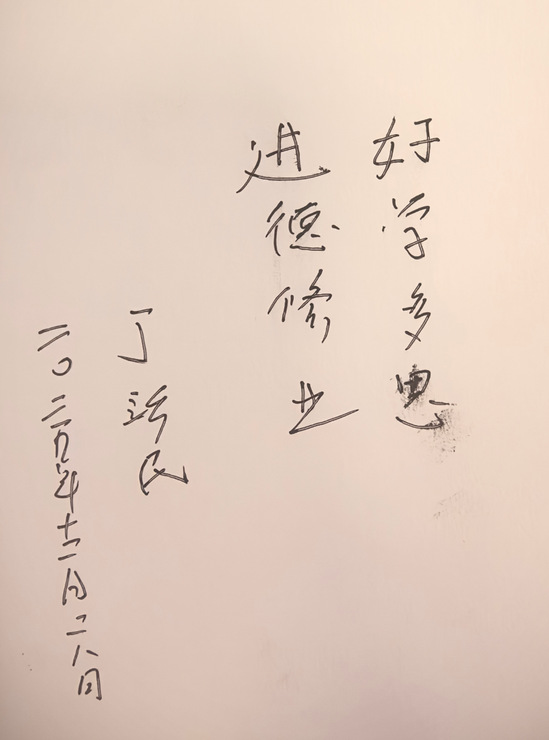 好学多思
进德修业
丁 民
二〇二五年十二月二八日